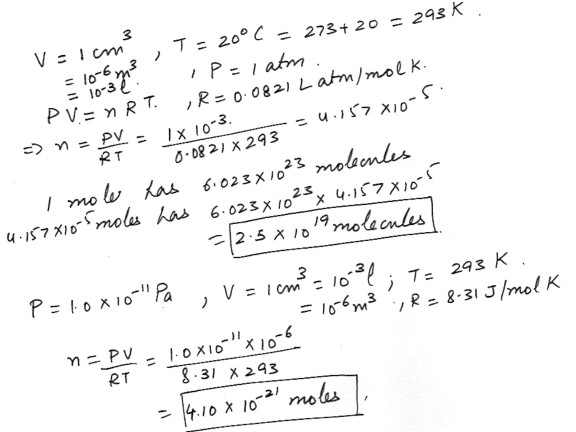 V = 1 cm³ , T = 20°C = 273+20 = 293 K .
= 10⁻⁶ m³ , P = 1 atm .
= 10⁻³ l .
PV = nRT. , R = 0.0821 L atm/mol K.
=> n = PV/RT = 1 x 10⁻³. / 0.0821 x 293 = 4.157 x 10⁻⁵.
1 mole has 6.023 x 10²³ molecules
4.157 x 10⁻⁵ moles has 6.023 x 10²³ x 4.157 x 10⁻⁵
= 2.5 x 10¹⁹ molecules
P = 1.0 x 10⁻¹¹ Pa , V = 1 cm³ = 10⁻³ l ; T = 293 K .
= 10⁻⁶ m³ , R = 8.31 J/mol K
n = PV/RT = 1.0 x 10⁻¹¹ x 10⁻⁶ / 8.31 x 293
= 4.10 x 10⁻²¹ moles .